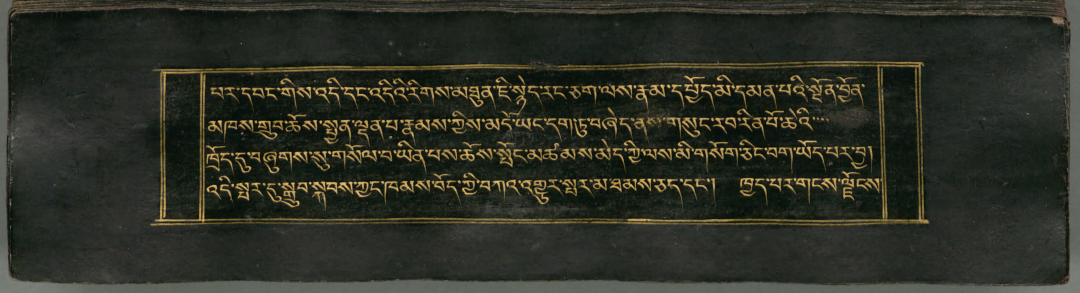 པར་དབང་གིས་འདི་དང་འདི་འི་རིགས་མཐུན་ཇི་སྙེད་རང་ཅག་ལས་རྣམ་དཔྱོད་མི་དམན་པའི་སྔོན་བྱོན་
མཁས་གྲུབ་ཆོས་སྤྱན་ལྡན་པ་རྣམས་ཀྱིས་མདོ་ཡང་དག་ཏུ་བཞེད་ནས་གསུང་རབ་རིན་པོ་ཆེའི་
ཁྲོད་དུ་བཞུགས་སུ་གསོལ་བ་ཡིན་པས་ཆོས་སྤོང་མཚམས་མེད་ཀྱི་ལས་མི་གསོག་ཅིང་བག་ཡོད་པར་བྱ།
འདི་སྤར་དུ་སྒྲུབ་སྐབས་ཀྱང་ཁམས་བོད་ཀྱི་བཀའ་འགྱུར་སྤར་མ་ཐམས་ཅད་དང་། ཁྱད་པར་གངས་ལྗོངས་